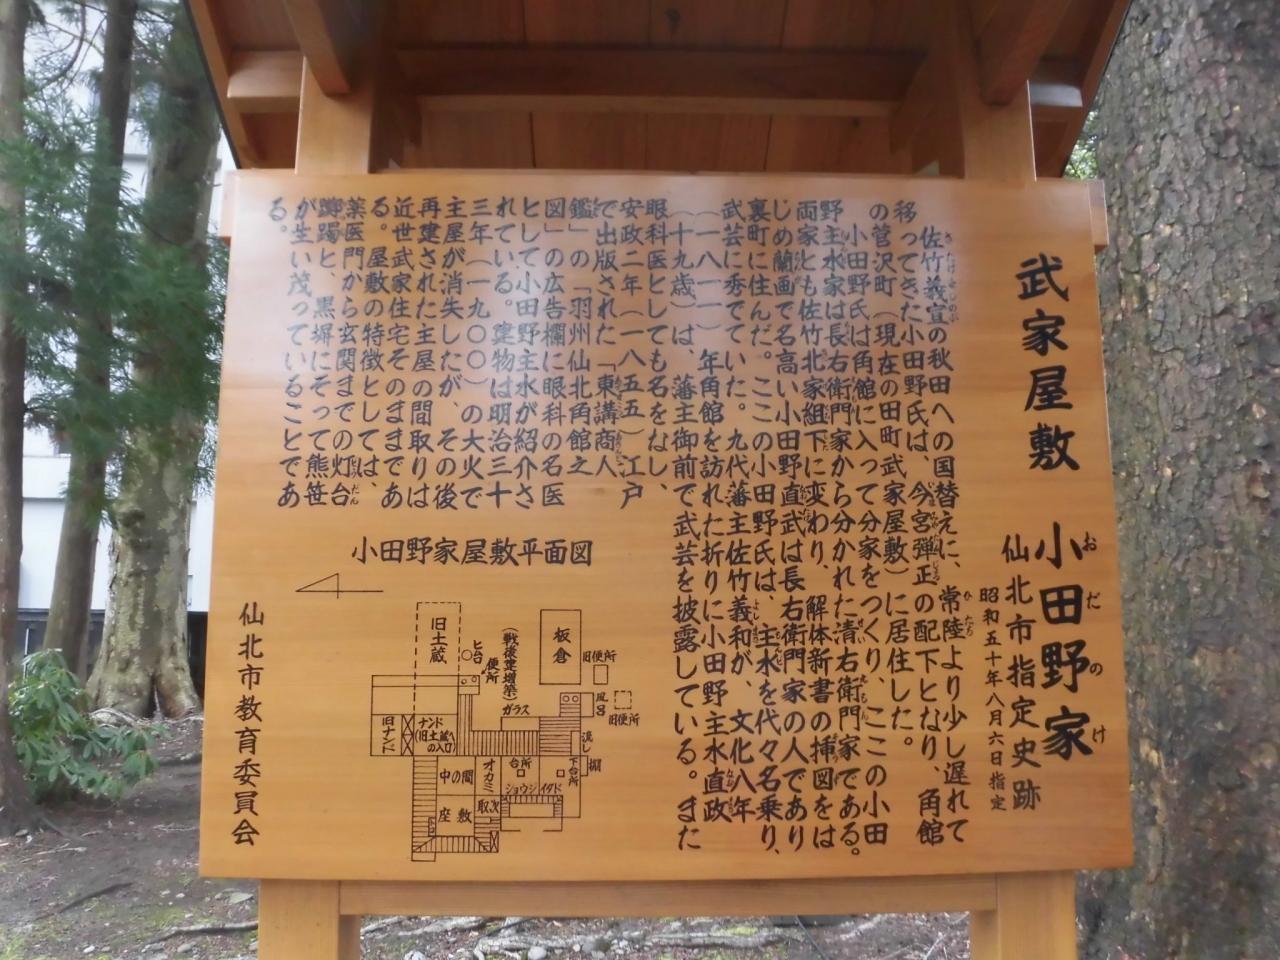 武家屋敷　小田野家
おだのけ
仙北市指定史跡
昭和五十年八月六日指定
佐竹義宣の秋田への国替えに、常陸より少し遅れて
移ってきた小田野氏は、今宮弾正の配下となり、角館
の菅沢町（現在の田町武家屋敷）に居住した。
小田野氏は角館に入って分家をつくり、ここの小田
野主水家は長右衛門家から分かれた清右衛門家である。
両家とも佐竹北家組下に変わり、解体新書の挿図をは
じめ蘭画で名高い小田野直武は長右衛門家の人であり
裏町に住んだ。ここの小田野氏は、主水を代々名乗り、
武芸に秀でていた。九代藩主佐竹義和が、文化八年
（一八一一）年角館を訪れた折りに小田野主水直政
（十九歳）は、藩主御前で武芸を披露している。また
眼科医としても名をなし、
安政二年（一八五五）江戸
で出版された「東講商人
鑑」の「羽州仙北角館之
図」の広告欄に眼科の名医
として小田野主水が紹介さ
れている。建物は明治三十
三年（一九〇〇）の大火で
主屋が消失したが、その後
再建された主屋の間取りは
近世武家住宅そのままであ
る。屋敷の特徴としては、
薬医門から玄関までの灯台
躑躅と、黒塀にそって熊笹
が生い茂っていることであ
る。
小田野家屋敷平面図
旧土蔵
ヒ台
便所
（戦後建増築）
板倉
旧便所
ガラス
風呂
旧便所
旧ナンド
ナンド
（旧土蔵への入口）
流し
棚
中の間
オカミ
台所
下台所
ショウジ
イタド
座敷
取次
仙北市教育委員会